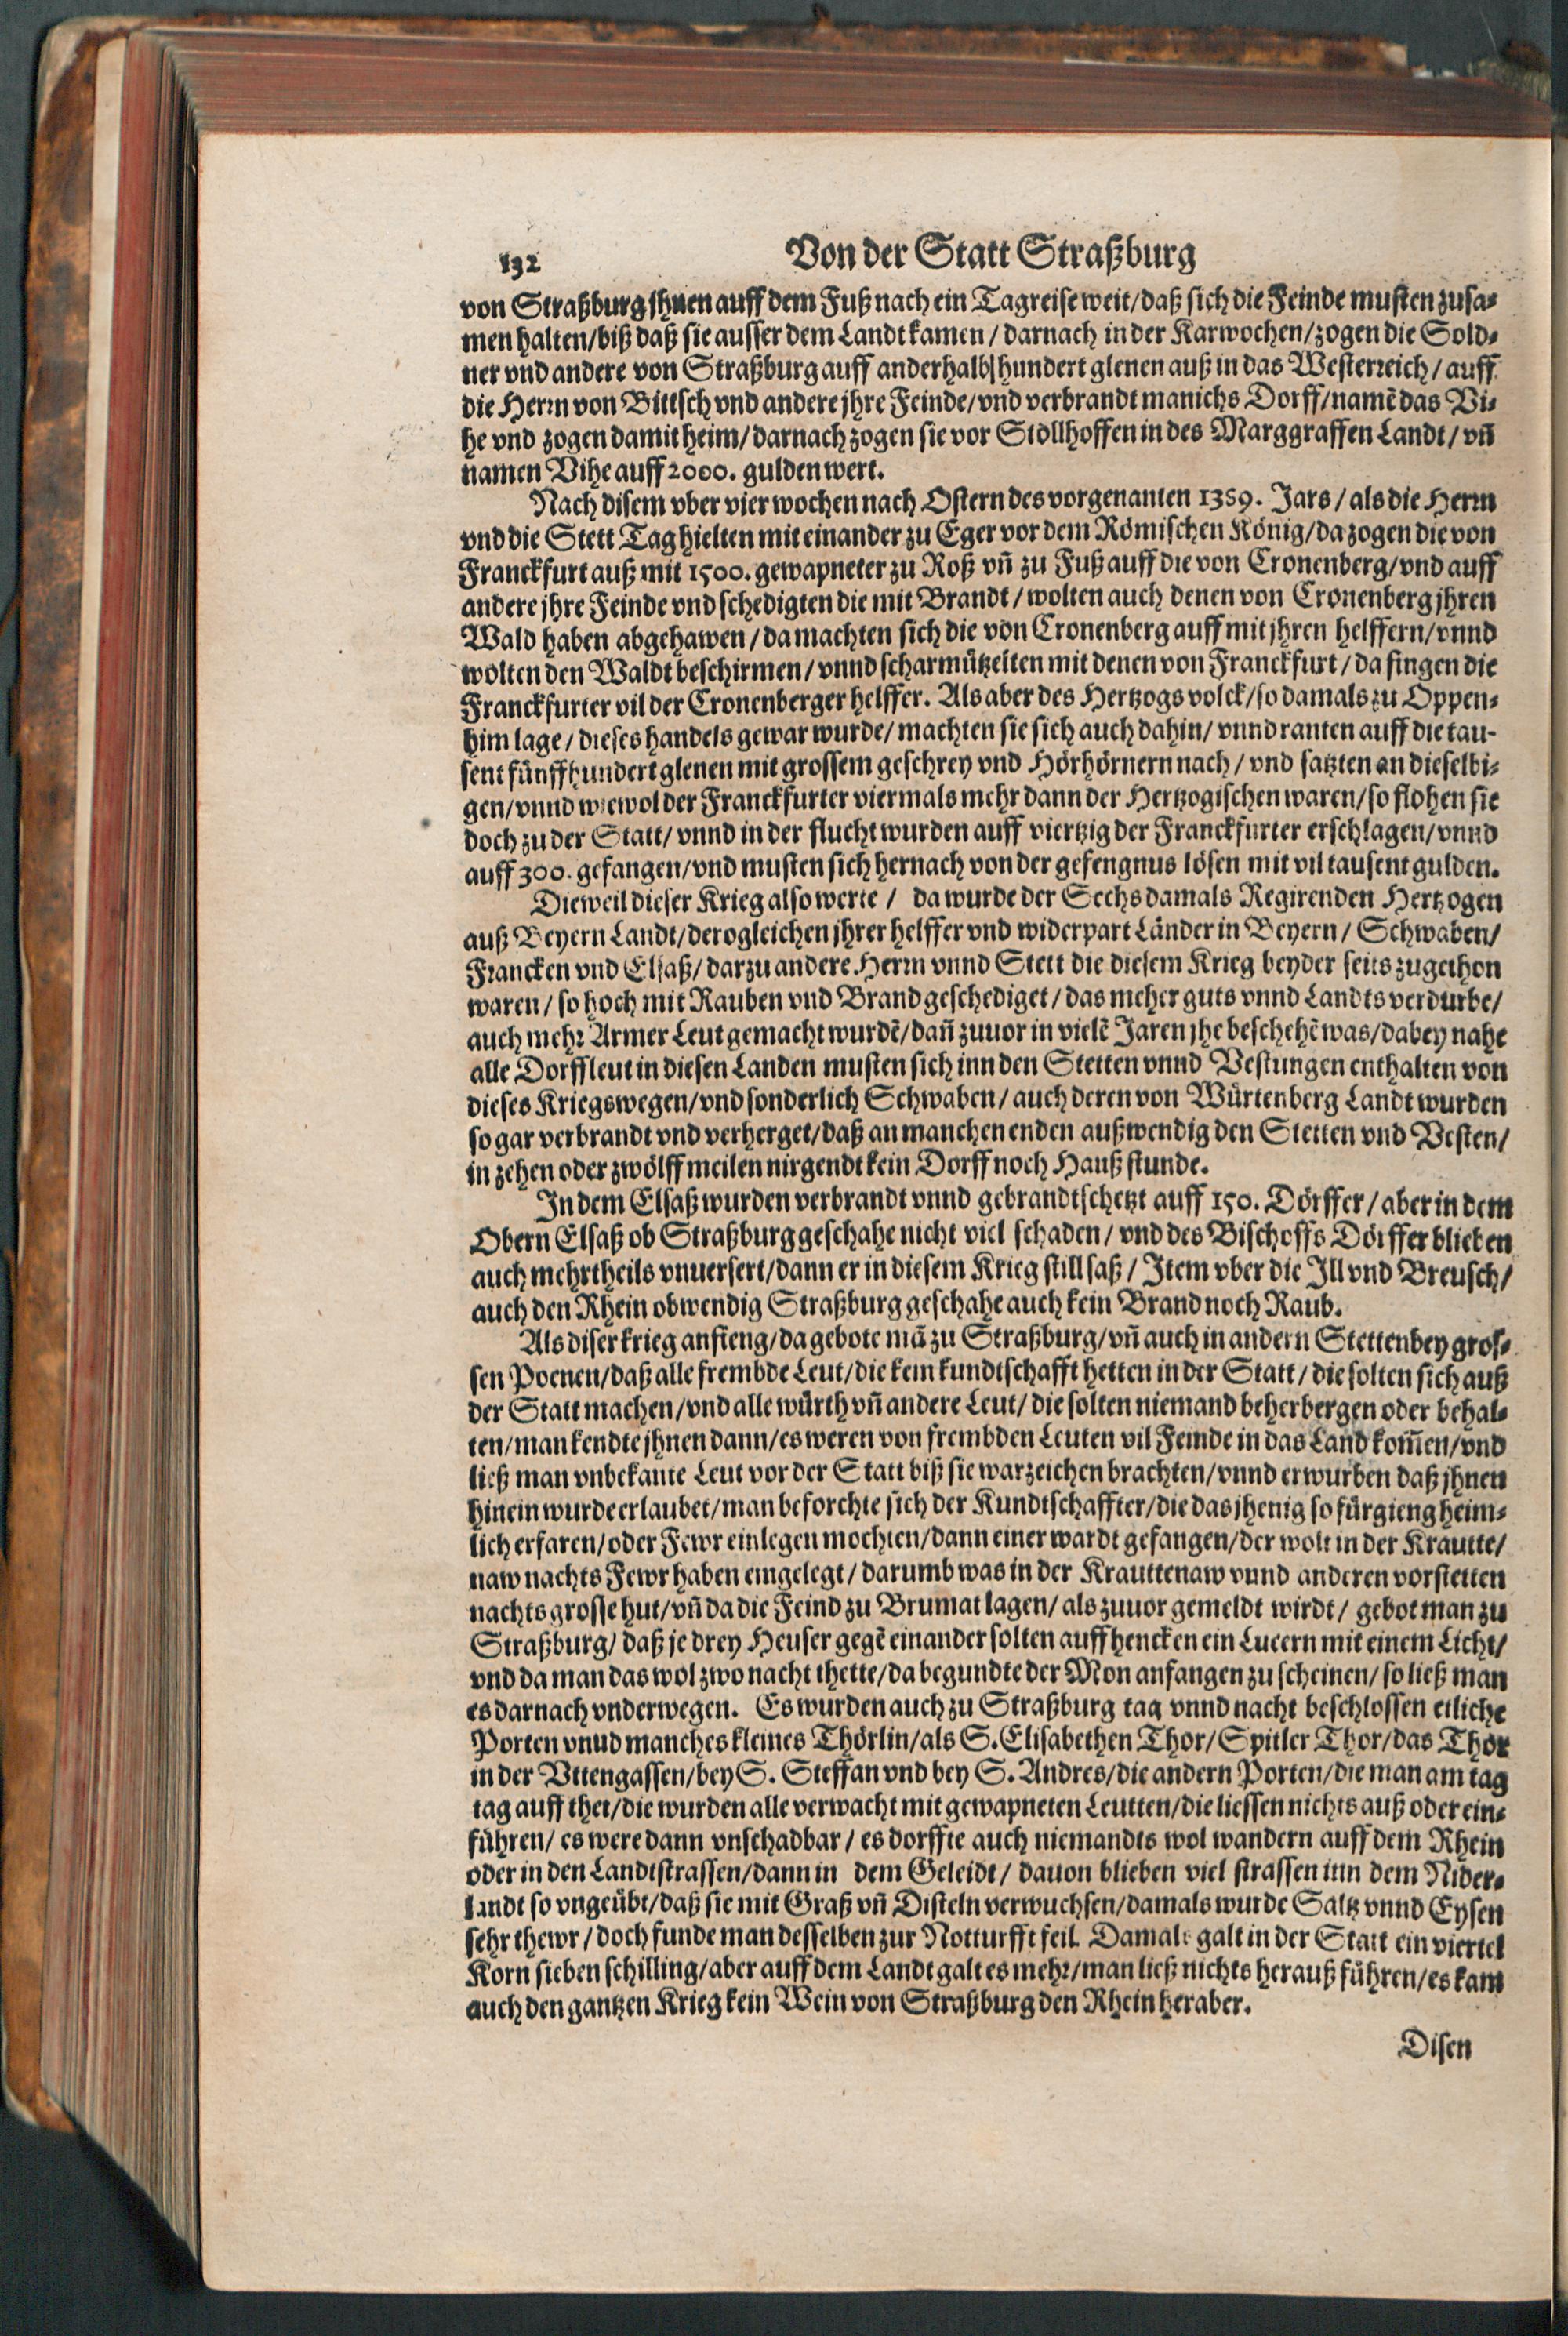 192 Von der Statt Straßburg
von Straßburg jhnen auff dem Fuß nach ein Tagreise weit/daß sich die Feinde musten zusa⸗
men halten/biß daß sie ausser dem Landt kamen/darnach in der Karwochen/zogen die Sold⸗
ner vnd andere von Straßburg auff anderhalb hundert glenen auß in das Westerreich/auff
die Herrn von Bittsch vnd andere jhre Feinde/vnd verbrandt manichs Dorff/namē das Vi⸗
he vnd zogen damit heim/darnach zogen sie vor Stollhoffen in des Marggraffen Landt/vn̄
namen Vihe auff 2000. gulden wert.
Nach disem vber vier wochen nach Ostern des vorgenanten 1389. Jars/als die Herrn
vnd die Stett Tag hielten mit einander zu Eger vor dem Römischen König/da zogen die von
Franckfurt auß mit 1500. gewapneter zu Roß vn̄ zu Fuß auff die von Cronenberg/vnd auff
andere jhre Feinde vnd schedigten die mit Brandt/wolten auch denen von Cronenberg jhren
Wald haben abgehawen/da machten sich die von Cronenberg auff mit jhren helffern/vnnd
wolten den Waldt beschirmen/vnnd scharmützelten mit denen von Franckfurt/da fingen die
Franckfurter vil der Cronenberger helffer. Als aber des Hertzogs volck/so damals zu Oppen⸗
him lage/dieses handels gewar wurde/machten sie sich auch dahin/vnnd ranten auff die tau⸗
sent fünffhundert glenen mit grossem geschrey vnd Hörhörnern nach/vnd satzten an dieselbi⸗
gen/vnnd wiewol der Franckfurter viermals mehr dann der Hertzogischen waren/so flohen sie
doch zu der Statt/vnnd in der flucht wurden auff viertzig der Franckfurter erschlagen/vnnd
auff 300. gefangen/vnd musten sich hernach von der gefengnus lösen mit vil tausent gulden.
Dieweil dieser Krieg also werte/ da wurde der Sechs damals Regirenden Hertzogen
auß Beyern Landt/derogleichen jhrer helffer vnd widerpart Länder in Beyern/Schwaben/
Francken vnd Elsaß/darzu andere Herrn vnnd Stett die diesem Krieg beyder seits zugethon
waren/so hoch mit Rauben vnd Brand geschediget/das meher guts vnnd Landts verdurbe/
auch mehr Armer Leut gemacht wurdē/dan̄ zuuor in vielē Jaren jhe beschehē was/dabey nahe
alle Dorffleut in diesen Landen musten sich inn den Stetten vnnd Vestungen enthalten von
dieses Kriegswegen/vnd sonderlich Schwaben/auch deren von Würtenberg Landt wurden
so gar verbrandt vnd verherget/daß an manchen enden außwendig den Stetten vnd Vesten/
in zehen oder zwölff meilen nirgendt kein Dorff noch Hauß stunde.
In dem Elsaß wurden verbrandt vnnd gebrandtschetzt auff 150. Dörffer/aber in dem
Obern Elsaß ob Straßburg geschahe nicht viel schaden/vnd des Bischoffs Dörffer blieben
auch mehrtheils vnuersert/dann er in diesem Krieg still saß/Item vber die Ill vnd Breusch/
auch den Rhein obwendig Straßburg geschahe auch kein Brand noch Raub.
Als diser krieg anfieng/da gebote mā zu Straßburg/vn̄ auch in andern Stetten bey gros⸗
sen Poenen/daß alle frembde Leut/die kein kundtschafft hetten in der Statt/die solten sich auß
der Statt machen/vnd alle würth vn̄ andere Leut/die solten niemand beherbergen oder behal⸗
ten/man kendte jhnen dann/es weren von frembden Leuten vil Feinde in das Land kom̄en/vnd
ließ man vnbekante Leut vor der Statt biß sie warzeichen brachten/vnnd erwurben daß jhnen
hinein wurde erlaubet/man beforchte sich der Kundtschaffter/die das jhenig so fürgieng heim⸗
lich erfaren/oder Fewr einlegen mochten/dann einer wardt gefangen/der wolt in der Krautte/
naw nachts Fewr haben eingelegt/darumb was in der Krauttenaw vnnd anderen vorstetten
nachts grosse hut/vn̄ da die Feind zu Brumat lagen/als zuuor gemeldt wirdt/gebot man zu
Straßburg/daß je drey Heuser gegē einander solten auffhencken ein Lucern mit einem Licht/
vnd da man das wol zwo nacht thette/da begundte der Mon anfangen zu scheinen/so ließ man
es darnach vnderwegen. Es wurden auch zu Straßburg tag vnnd nacht beschlossen etliche
Porten vnnd manches kleines Thörlin/als S. Elisabethen Thor/Spitler Thor/das Thor
in der Vttengassen/bey S. Steffan vnd bey S. Andres/die andern Porten/die man am tag
tag auff thet/die wurden alle verwacht mit gewapneten Leutten/die liessen nichts auß oder ein⸗
führen/es were dann vnschadbar/es dorffte auch niemandts wol wandern auff dem Rhein
oder in den Landtstrassen/dann in dem Geleidt/dauon blieben viel strassen inn dem Nider⸗
landt so vngeübt/daß sie mit Graß vn̄ Disteln verwuchsen/damals wurde Saltz vnnd Eysen
sehr thewr/doch funde man desselben zur Notturfft feil. Damals galt in der Statt ein viertel
Korn sieben schilling/aber auff dem Landt galt es mehr/man ließ nichts herauß führen/es kam
auch den gantzen Krieg kein Wein von Straßburg den Rhein heraber.
Disen